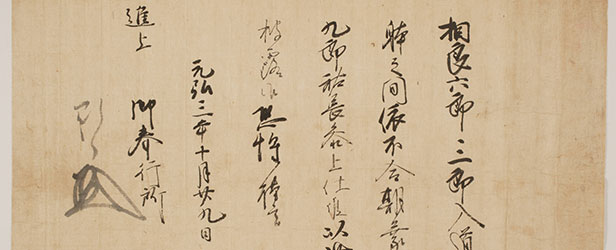 相良六郎三郎入道
之間依不合期
九郎祐長参上仕候以
披露候恐惶謹言
元弘三年十月廿九日
進上 御奉行所